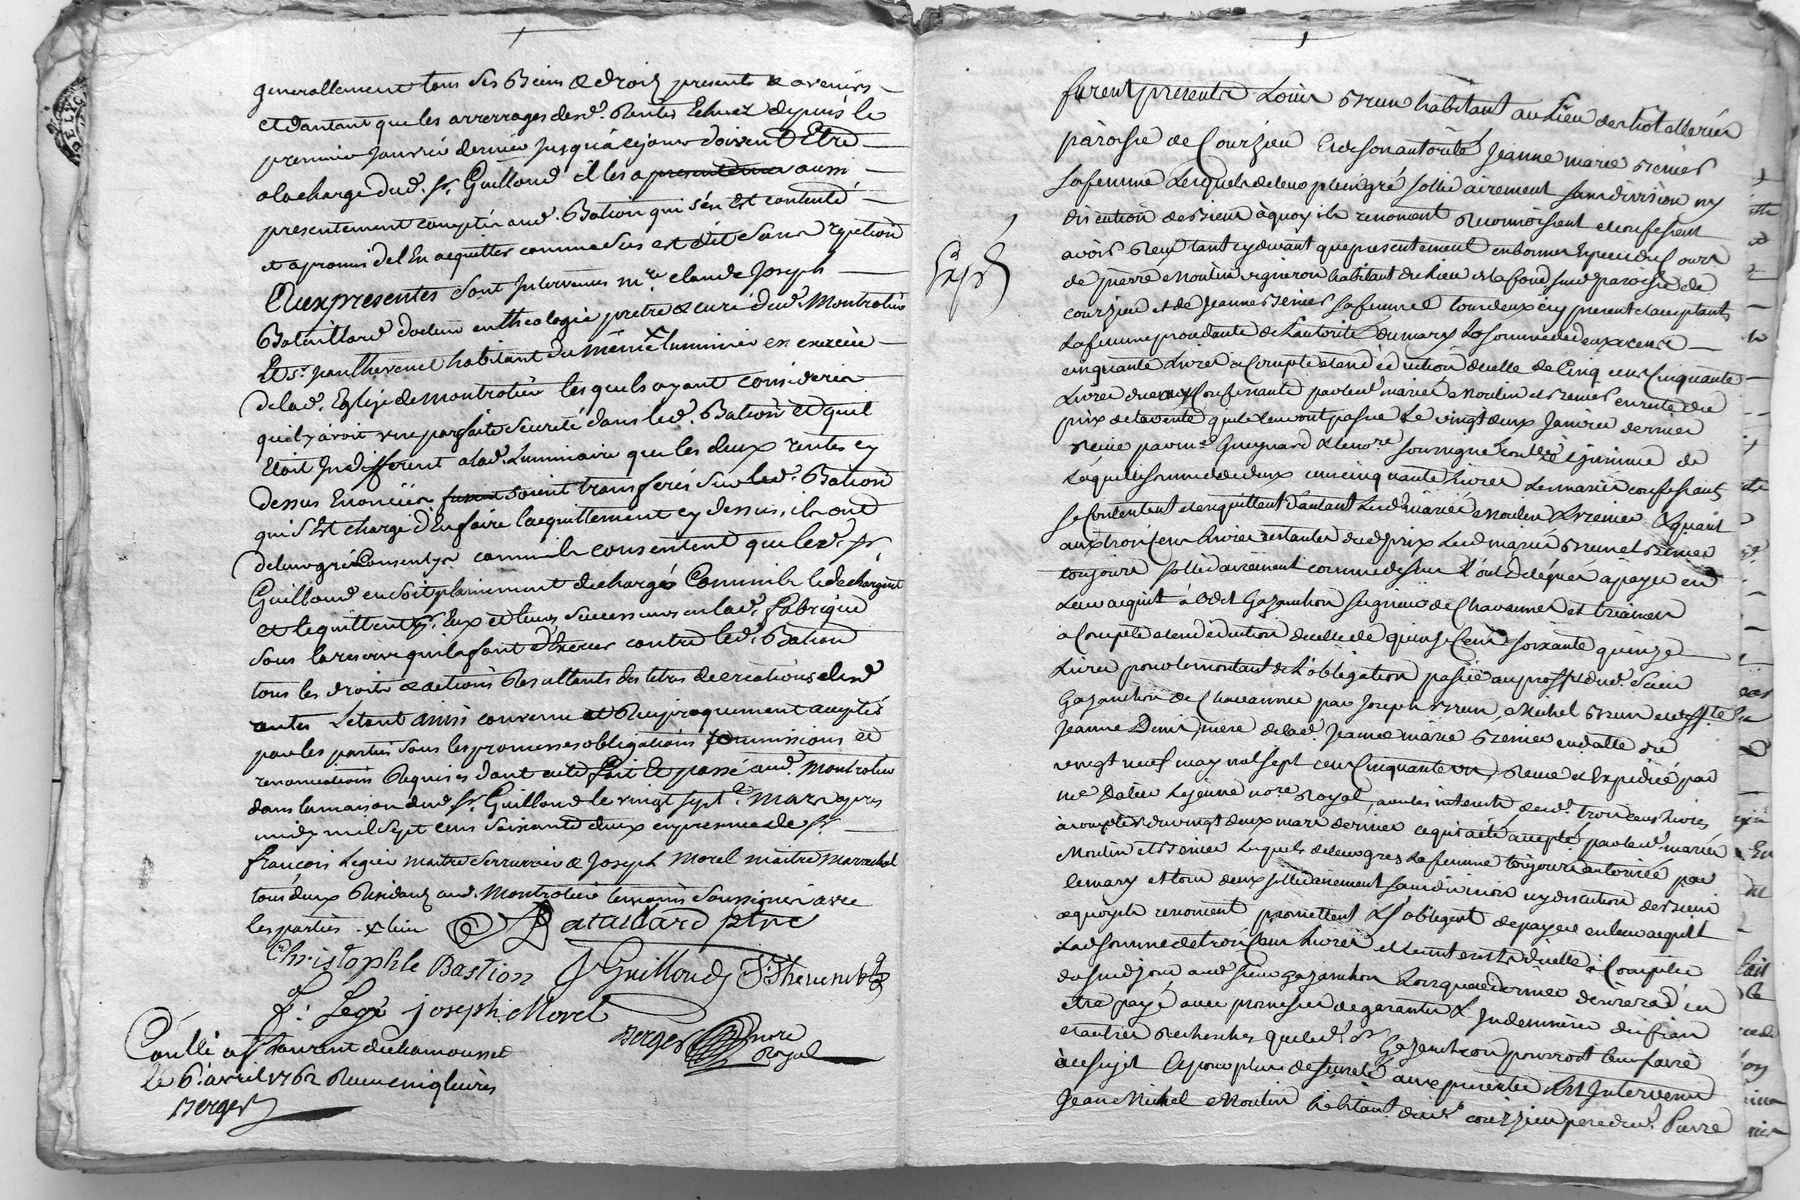 generallement tous ses Biens & droits presents & avenirs
et dautant que les arrerages desd. Rentes Echues depuis le
premier Janvier dernier jusqu'a ce jour doivent Etre
a la charge dud. Sr. Guilloud il les a presentement aussi
presentement comptés aud. Bation qui s'en Est contenté
et a promis de l'En acquitter comme dessus est dit sans repetition
Et aux presentes sont Intervenus me. claude Joseph
Bataillard docteur en theologie pretre & curé dud. Montrotier
Et sr. habitant du même x luminier en exercice
de lad. Eglise de montrotier lesquels ayant considerés
qu'il y avoit une parfaite seureté dans led. Bation et quil
Etoit Indifferent a lad. Luminaire que les deux rentes cy
dessus Enoncées furent soient transferés sur led. Bation
qui s'Est chargé d'En faire l'acquittement cy dessus, ils ont
de leur gré Consenty & comme ils consentent que led. sr.
Guilloud en soit plainement dechargé Comme ils le dechargent
et le quittent pr. Eux et leurs successeurs en lad. fabrique
sous la reserve quils font d'Exercer contre led. Bation
tous les droits & actions Resultants des titres de creations desd.
rentes L'etant ainsi convenu et Reciproquement accepté
par les parties sous les promesses obligations soumissions et
renonciations Requises dont acte fait Et passé aud. Montrotier
dans la maison dud. sr. Guilloud le vingt sept e. Mars apres
midy mil sept cens soixante deux en presence de sr.
françois Legér maitre Serrurier & Joseph Morel maitre Marechal
tous deux Residants aud. Montrotier temoins soussignés avec
les parties. x lieu
Bataillard ptre
Christophle Bastion J Guilloud
f: Legé joseph. Morel
Berger nore Royal
Conllé a st Laurent de chamousset
le 6. avril 1762 Recu cinq livres
Berger
furent presents Louis Brun habitant au Lieu des hotelleries
paroisse de Courzieu Et de son autorité Jeanne marie
sa femme Lesquels de leur plein gré sollidairement sans division ny
discution de Biens à quoy ils renoncent Reconnoissent et confessent
avoir Recu tant cy devant que presentement en bonnes Especes du Cours
de pierre Moulin vigneron habitant du lieu de la fond sud. paroisse de
courzieu et de Jeanne sa femme tous deux icy present et acceptants
La femme procedante de L'autorité du mary La somme de deux cents
cinquante Livres a Compte et en dedution d'celle de Cinq cens Cinquante
Livres
prix de la vente quils leur ont passée Le vingt deux Janvier dernier
Recue par me. Guynard & le nore. soussigné
Laquelle somme de deux cens cinquante Livres Les mariés confessants
se Contentent et en quittent d'autant Lesd. mariés Moulin & Et quant
aux trois Cens Livres restantes dud. prix Lesd. mariés Brun et
toujours sollidairement comme dessus l'ont délégué a payer en
Leur acquit à Odet Gazanchon seigneur de Chavannes et
a Compte et en dedution d'celle de quinze Cens soixante quinze
Livres pour le montant de L'obligation passée au proffit dud. Sieur
Gazanchon de Chavannes par Joseph Brun, Michel Brun et
Jeanne Denis mere de lad. Jeanne marie en datte du
vingt neuf may mil sept cens Cinquante un Recue et Expediée par
me. Dalin Lejeune nore. Royal, avec les interests desd. trois cens livres
a compter du vingt deux mars dernier ce qui a été accepté par lesd. mariés
Moulin et Lesquels de leur grés La femme toujours autorisée par
le mary et tous deux sollidairement sans division ny discution de Biens
a quoy ils renoncent promettent Et s'obligent de payer en leur acquit
Lad. somme de trois Cens Livres et les interests d'celle à Compter
dud. jour aud. sieur Gazanchon Lorsque ce dernier desirera d'en
etre payé avec promesses de garentir & Indemniser
et autres Recherches que led. sr. Gazanchon pourroit leur faire
à ce sujet Et pour plus de seureté aux presentes est Intervenu
Jean Michel Moulin habitant dud. courzieu pere dud. Pierre